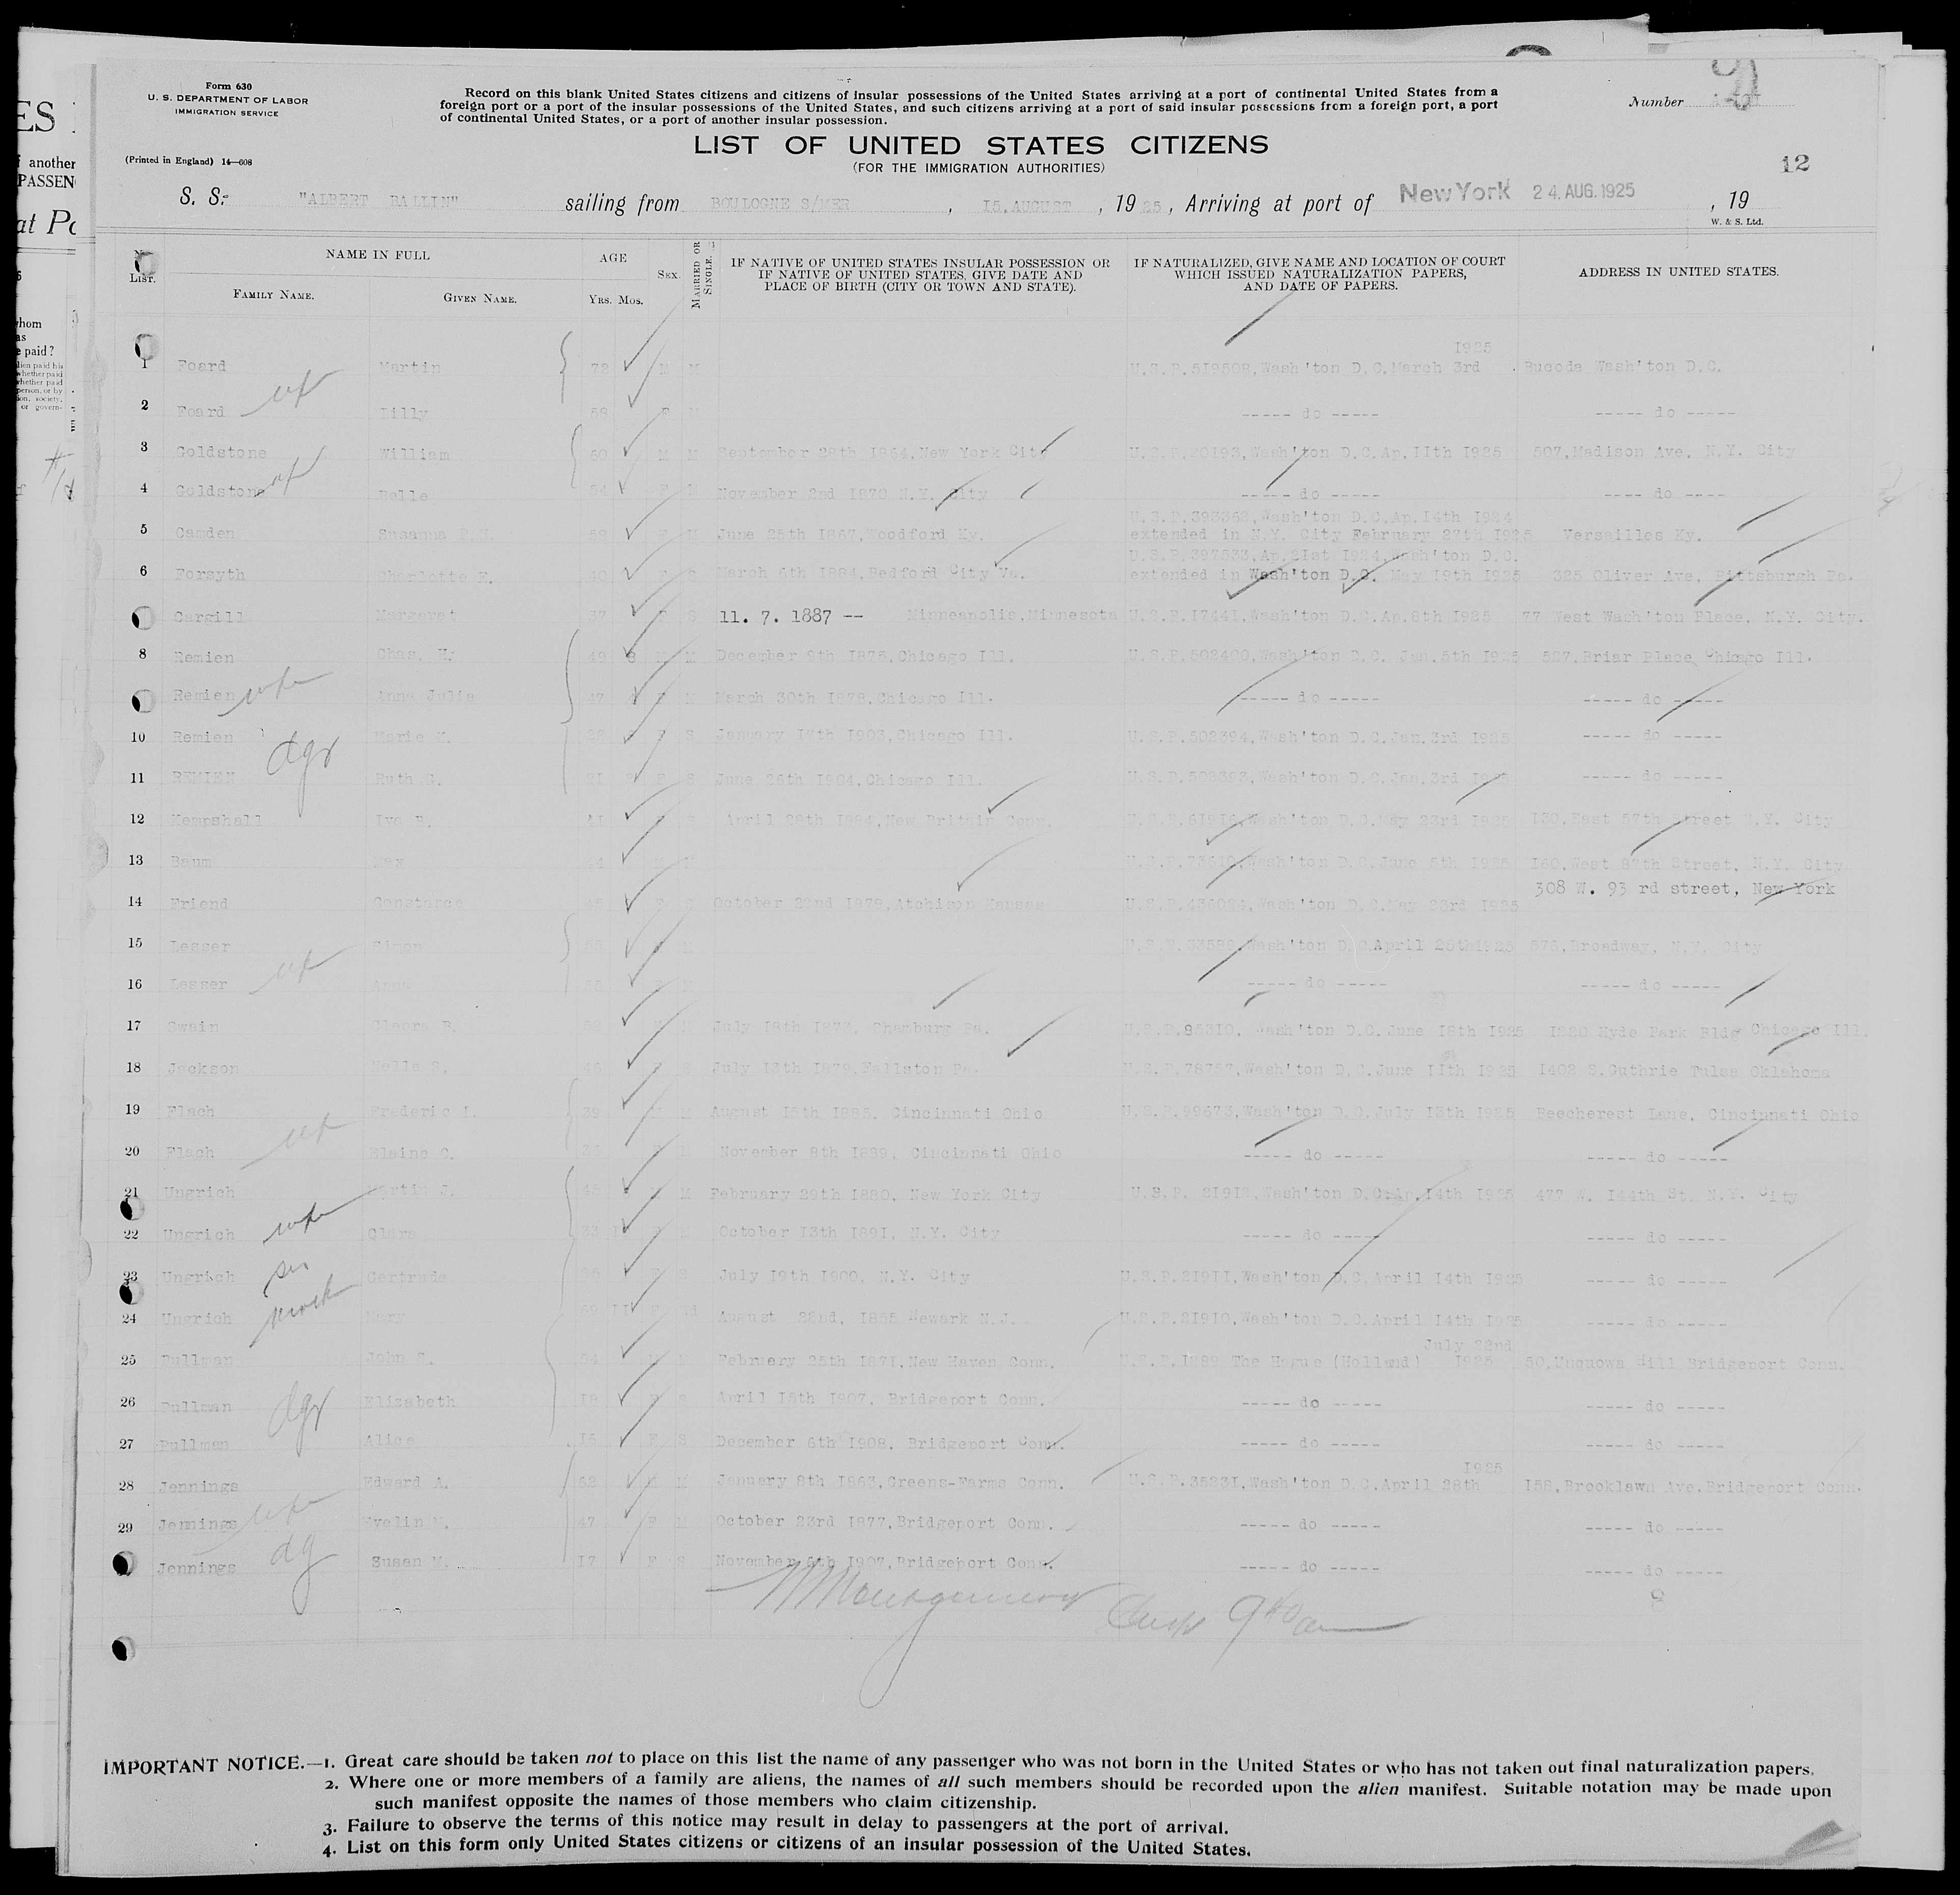 Form 630
U. S. DEPARTMENT OF LABOR
IMMIGRATION SERVICE
(Printed in England) 14—608
Record on this blank United States citizens and citizens of insular possessions of the United States arriving at a port of continental United States from a
foreign port or a port of the insular possessions of the United States, and such citizens arriving at a port of said insular possessions from a foreign port, a port
of continental United States, or a port of another insular possession.
Number
LIST OF UNITED STATES CITIZENS
(FOR THE IMMIGRATION AUTHORITIES)
12
S. S. "ALBERT BALLIN" sailing from BOULOGNE S/MER, 15.AUGUST, 1925, Arriving at port of New York 24. AUG. 1925, 19
W. & S. Ltd.
LIST.
NAME IN FULL
FAMILY NAME. GIVEN NAME.
AGE
YRS. MOS.
SEX.
MARRIED OR SINGLE.
IF NATIVE OF UNITED STATES INSULAR POSSESSION OR
IF NATIVE OF UNITED STATES, GIVE DATE AND
PLACE OF BIRTH (CITY OR TOWN AND STATE).
IF NATURALIZED, GIVE NAME AND LOCATION OF COURT
WHICH ISSUED NATURALIZATION PAPERS,
AND DATE OF PAPERS.
ADDRESS IN UNITED STATES.
1925
1 Foard Martin 72 M M U.S.P.519508,Wash'ton D.C.March 3rd Bucoda Wash'ton D.C.
2 Foard wf Lilly 58 F M ----- do ----- ----- do -----
3 Goldstone William 60 M M September 28th 1864,New York City U.S.P.20193,Wash'ton D.C.Ap.11th 1925 507,Madison Ave. N.Y. City
4 Goldstone wf Belle 54 F M November 2nd 1870 N.Y. City ----- do ----- ---- do ----
U.S.P.393362,Wash'ton D.C.Ap.14th 1924
5 Camden Susanna 58 F M June 25th 1867,Woodford Ky. extended in N.Y. City February 27th 1925 Versailles Ky.
U.S.P.397533,Ap.21st 1924,Wash'ton D.C.
6 Forsyth Charlotte E. F S March 6th 1884,Bedford City Va. extended in Wash'ton D.C. May 19th 1925 325 Oliver Ave. Pittsburgh Pa.
Cargill Margaret 37 F S 11. 7. 1887 -- Minneapolis,Minnesota U.S.P.17441,Wash'ton D.C.Ap.8th 1925 77 West Wash'ton Place. N.Y. City.
8 Remien Chas. H. 49 8 M M December 9th 1875,Chicago Ill. U.S.P.502400,Wash'ton D.C. Jan.5th 1925 527,Briar Place Chicago Ill.
Remien wife Anna Julia 47 F M March 30th 1878,Chicago Ill. ----- do ----- ----- do -----
10 Remien dgr Marie 22 F S January 18th 1903,Chicago Ill. U.S.P.502394,Wash'ton D.C.Jan.3rd 1925 ----- do -----
11 REMIEN Ruth C. 21 F S June 26th 1904,Chicago Ill. U.S.P.502393,Wash'ton D.C.Jan.3rd 1925 ----- do -----
12 Kempshall Iva 41 F S April 29th 1884,New Britain Conn. U.S.P.61916,Wash'ton D.C.May 23rd 1925 130,East 57th Street N.Y. City
13 Baum Max 44 M U.S.P.,Wash'ton D.C.June 5th 1925 160,West 87th Street, N.Y. City
308 W. 93 rd street, New York
14 Friend Constance F S October 22nd 1879,Atchison Kansas U.S.P.436024,Wash'ton D.C.May 23rd 1925
15 Lesser Simon M U.S.P.33588,Wash'ton D.C.April 28th1925 576,Broadway, N.Y. City
16 Lesser wf Anna M ----- do ----- ----- do -----
17 Swain July 18th 1873, Pa. U.S.P.95310, Wash'ton D.C. June 18th 1925 1220 Hyde Park Bldg Chicago Ill.
18 Jackson Nelle S. 46 July 13th 1879,Fallston Pa. U.S.P.78757,Wash'ton D.C.June 11th 1925 1408 S.Guthrie Tulsa Oklahoma
19 Flach Frederic L. 39 M M August 15th 1885, Cincinnati Ohio U.S.P.99673,Wash'ton D.C.July 13th 1925 Beechcrest Lane, Cincinnati Ohio
20 Flach wf Elaine C. F M November 8th 1889, Cincinnati Ohio ----- do ----- ----- do -----
21 Ungrich Martin J. 45 M M February 29th 1880, New York City U.S.P. 21912,Wash'ton D.C.Ap.14th 1925 477 W. 144th St. N.Y. City
22 Ungrich wife Clara 33 F M October 13th 1891, N.Y. City ----- do ----- ----- do -----
23 Ungrich sis Gertrude F S July 19th 1900, N.Y. City U.S.P.21911,Wash'ton D.C.April 14th 1925 ----- do -----
24 Ungrich moth Mary 69 11 F Wd August 22nd, 1855 Newark N.J. U.S.P.21910,Wash'ton D.C.April 14th 1925 ----- do -----
July 22nd
25 Pullman John S. 54 M February 25th 1871,New Haven Conn. U.S.P.1289 The Hague (Holland) 1925 50,Unquowa Hill Bridgeport Conn.
26 Pullman dgr Elizabeth 18 F S April 15th 1907, Bridgeport Conn. ----- do ----- ----- do -----
27 Pullman Alice 16 F S December 6th 1908, Bridgeport Conn. ----- do ----- ----- do -----
1925
28 Jennings Edward A. 62 M M January 8th 1863,Greens-Farms Conn. U.S.P.35231,Wash'ton D.C.April 28th 158,Brooklawn Ave.Bridgeport Conn.
29 Jennings wife Evelin M. 47 F M October 23rd 1877,Bridgeport Conn. ----- do ----- ----- do -----
Jennings dg Susan M. 17 F S November 6th 1907,Bridgeport Conn. ----- do ----- ----- do -----
Montgomery
IMPORTANT NOTICE.—1. Great care should be taken not to place on this list the name of any passenger who was not born in the United States or who has not taken out final naturalization papers.
2. Where one or more members of a family are aliens, the names of all such members should be recorded upon the alien manifest. Suitable notation may be made upon
such manifest opposite the names of those members who claim citizenship.
3. Failure to observe the terms of this notice may result in delay to passengers at the port of arrival.
4. List on this form only United States citizens or citizens of an insular possession of the United States.